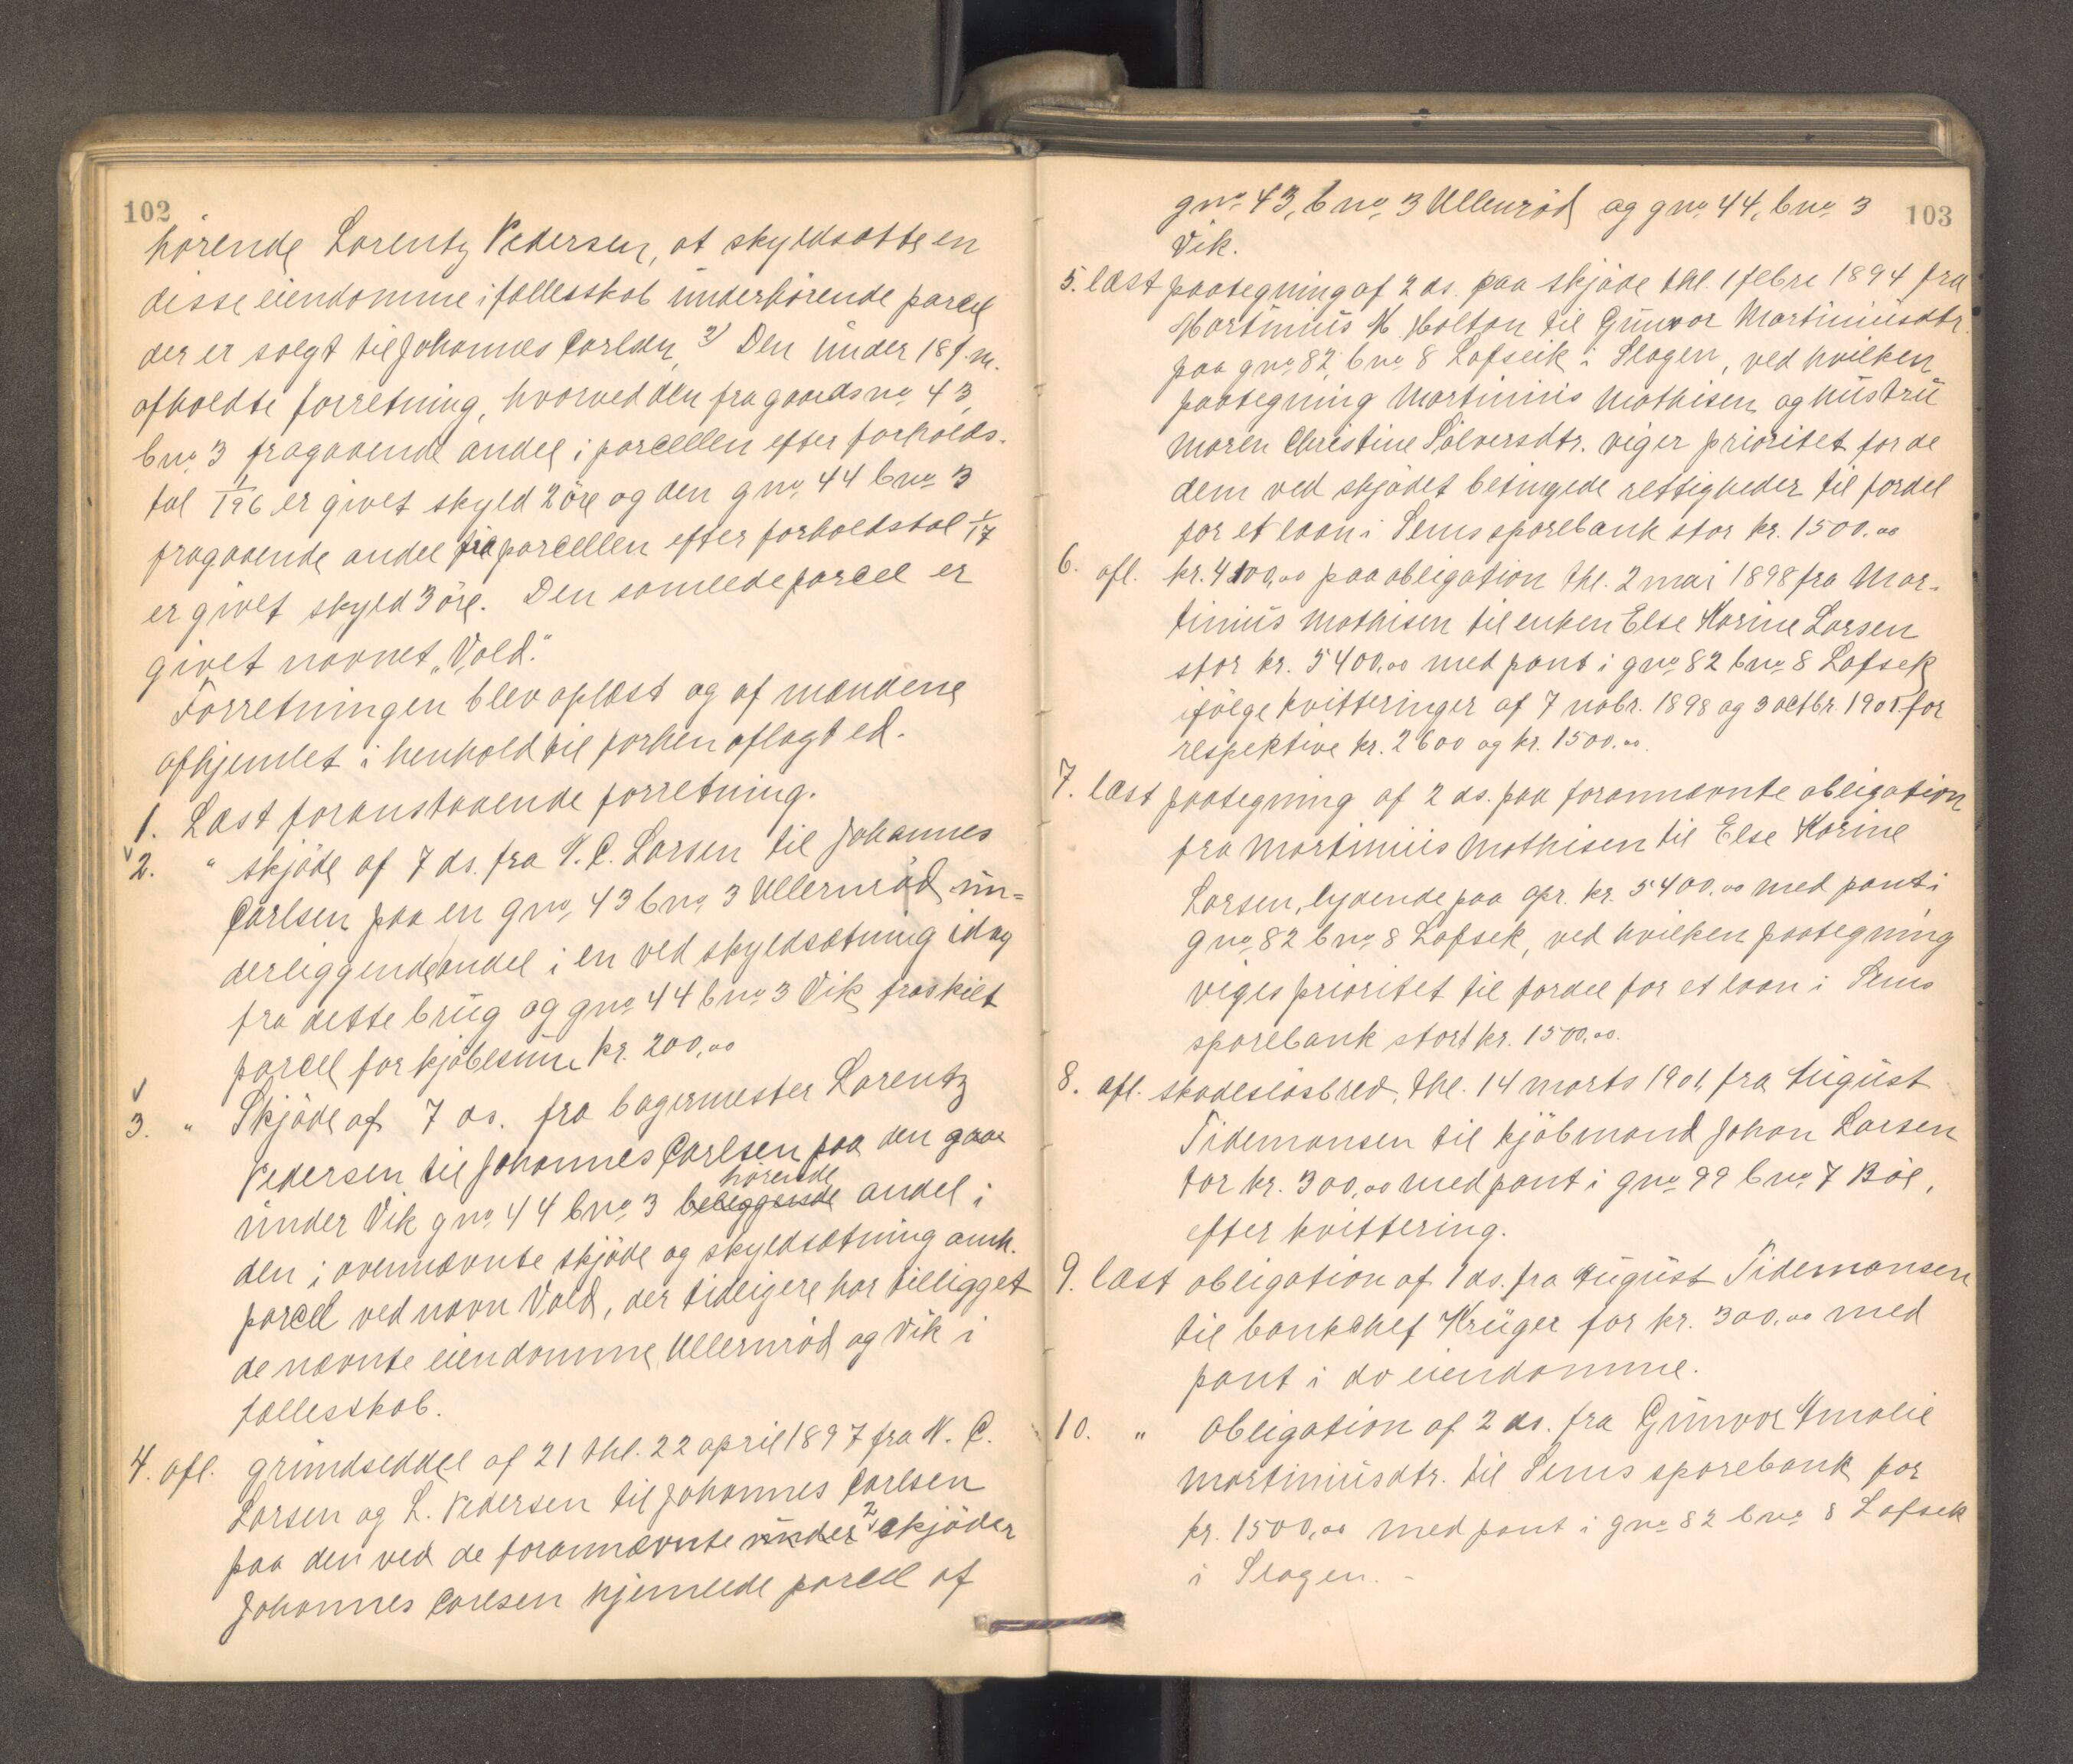 102
hørende Lorentz Pedersen, at skyldsætte en
disse eiendomme i fællesskab underhørende parcel
der er solgt til Johannes Carlsen, 2) Den under 18 f. m.
afholdte forretning, hvorved den fra gaards no. 43,
bno. 3 fragaaende andel i parcellen efter forholds-
tal 1/196 er givet skyld 2 øre og den gno. 44 bno. 3
fragaaende andel i parcellen efter forholdstal 1/17
er givet skyld 3 øre. Den samlede parcel er
givet navnet „Vold."
Forretningen blev oplæst og af mændene
afhjemlet i henhold til forhen aflagt ed.
1. Læst foranstaaende forretning.
2. " skjøde af 7 ds. fra N. C. Larsen til Johannes
Carlsen paa en gno. 43 bno. 3 Ullernrød un=
derliggende andel i en ved skyldsætning idag
fra dette brug og gno. 44 bno. 3 Vik fraskilt
parcel for kjøbesum kr. 200,00
3. " Skjøde af 7 ds. fra bagermester Lorentz
Pedersen til Johannes Carlsen paa den gaar
hørende
under Vik gno. 44 bno. 3 beliggende andel i
den i ovennævnte skjøde og skyldsætning omh.
parcel ved navn Vold, der tidligere har tilligget
de nævnte eiendomme Ullernrød og Vik i
fællesskab.
4. afl. grundseddel af 21 thl. 22 april 1897 fra N. C.
Larsen og L. Pedersen til Johannes Carlsen
paa den ved de forannævnte under 2 skjøder
Johannes Carlsen hjemlede parcel af
103
gno. 43, bno. 3 Ullenrød og gno. 44, bno. 3
Vik.
5. læst paategning af 2 ds. paa skjøde thl. 1 febr. 1894 fra
Martinius M. Holton til Gunvor Martiniusdtr.
paa gno. 82, bno. 8 Lofseik i Slagen, ved hvilken
paategning Martinius Mathisen og hustru
Maren Christine Sølversdtr. viger prioritet for de
dem ved skjødet betingede rettigheder til fordel
for et laan i Sems sparebank stor kr. 1500.00
6. afl. kr. 4100,00 paa obligation thl. 2 mai 1898 fra Mar-
tinius Mathisen til enken Else Karine Larsen
stor kr. 5400,00 med pant i gno. 82 bno. 8 Lofsek
ifølge kvitteringer af 7 nobr. 1898 og 3 octbr. 1901 for
respektive kr. 2600 og kr. 1500.00.
7. læst paategning af 2 ds. paa forannævnte obligation
fra Martinius Mathisen til Else Karine
Larsen, lydende paa opr. kr. 5400,00 med pant i
gno. 82 bno. 8 Lofsek, ved hvilken paategning
viges prioritet til fordel for et laan i Sems
sparebank stort kr. 1500,00.
8. afl. skadesløsbrev, thl. 14 marts 1901, fra August
Tidemansen til kjøbmand Johan Larsen
for kr. 300,00 med pant i gno. 99 bno. 7 Bøe,
efter kvittering.
9. læst obligation af 1 ds. fra August Tidemansen
til bankchef Krüger for kr. 300.00 med
pant i do eiendomme.
10. " Obligation af 2 ds. fra Gunvor Amalie
Martiniusdtr. til Sems sparebank for
kr. 1500,00 med pant i gno. 82 bno. 8 Lofsek
i Slagen. -